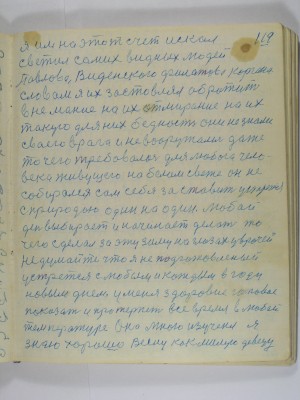 119
зим на этот счет искал
светил самих видных людей
Павлова, Виденского филатова
словам я их заставлял обратит
внемание на их отмирание на их
такую для них бедность они не знали
своего врага и невооружали даже
то чего требовалос для любога чело-
века живущего на белом свете он не
собирался сам себя заставит устретса
с природою один на один. любой
ден выбирает и начинает делат то
чего сделал за эту зиму на глазах у врачей
не думайте что я не подготовленый
устретса с любым и кождым в году
новым днем у меня здоровие головое
показат и протежет все время в любой
температуре Оно много изучено я
знаю хорошо Весну как малую девицу